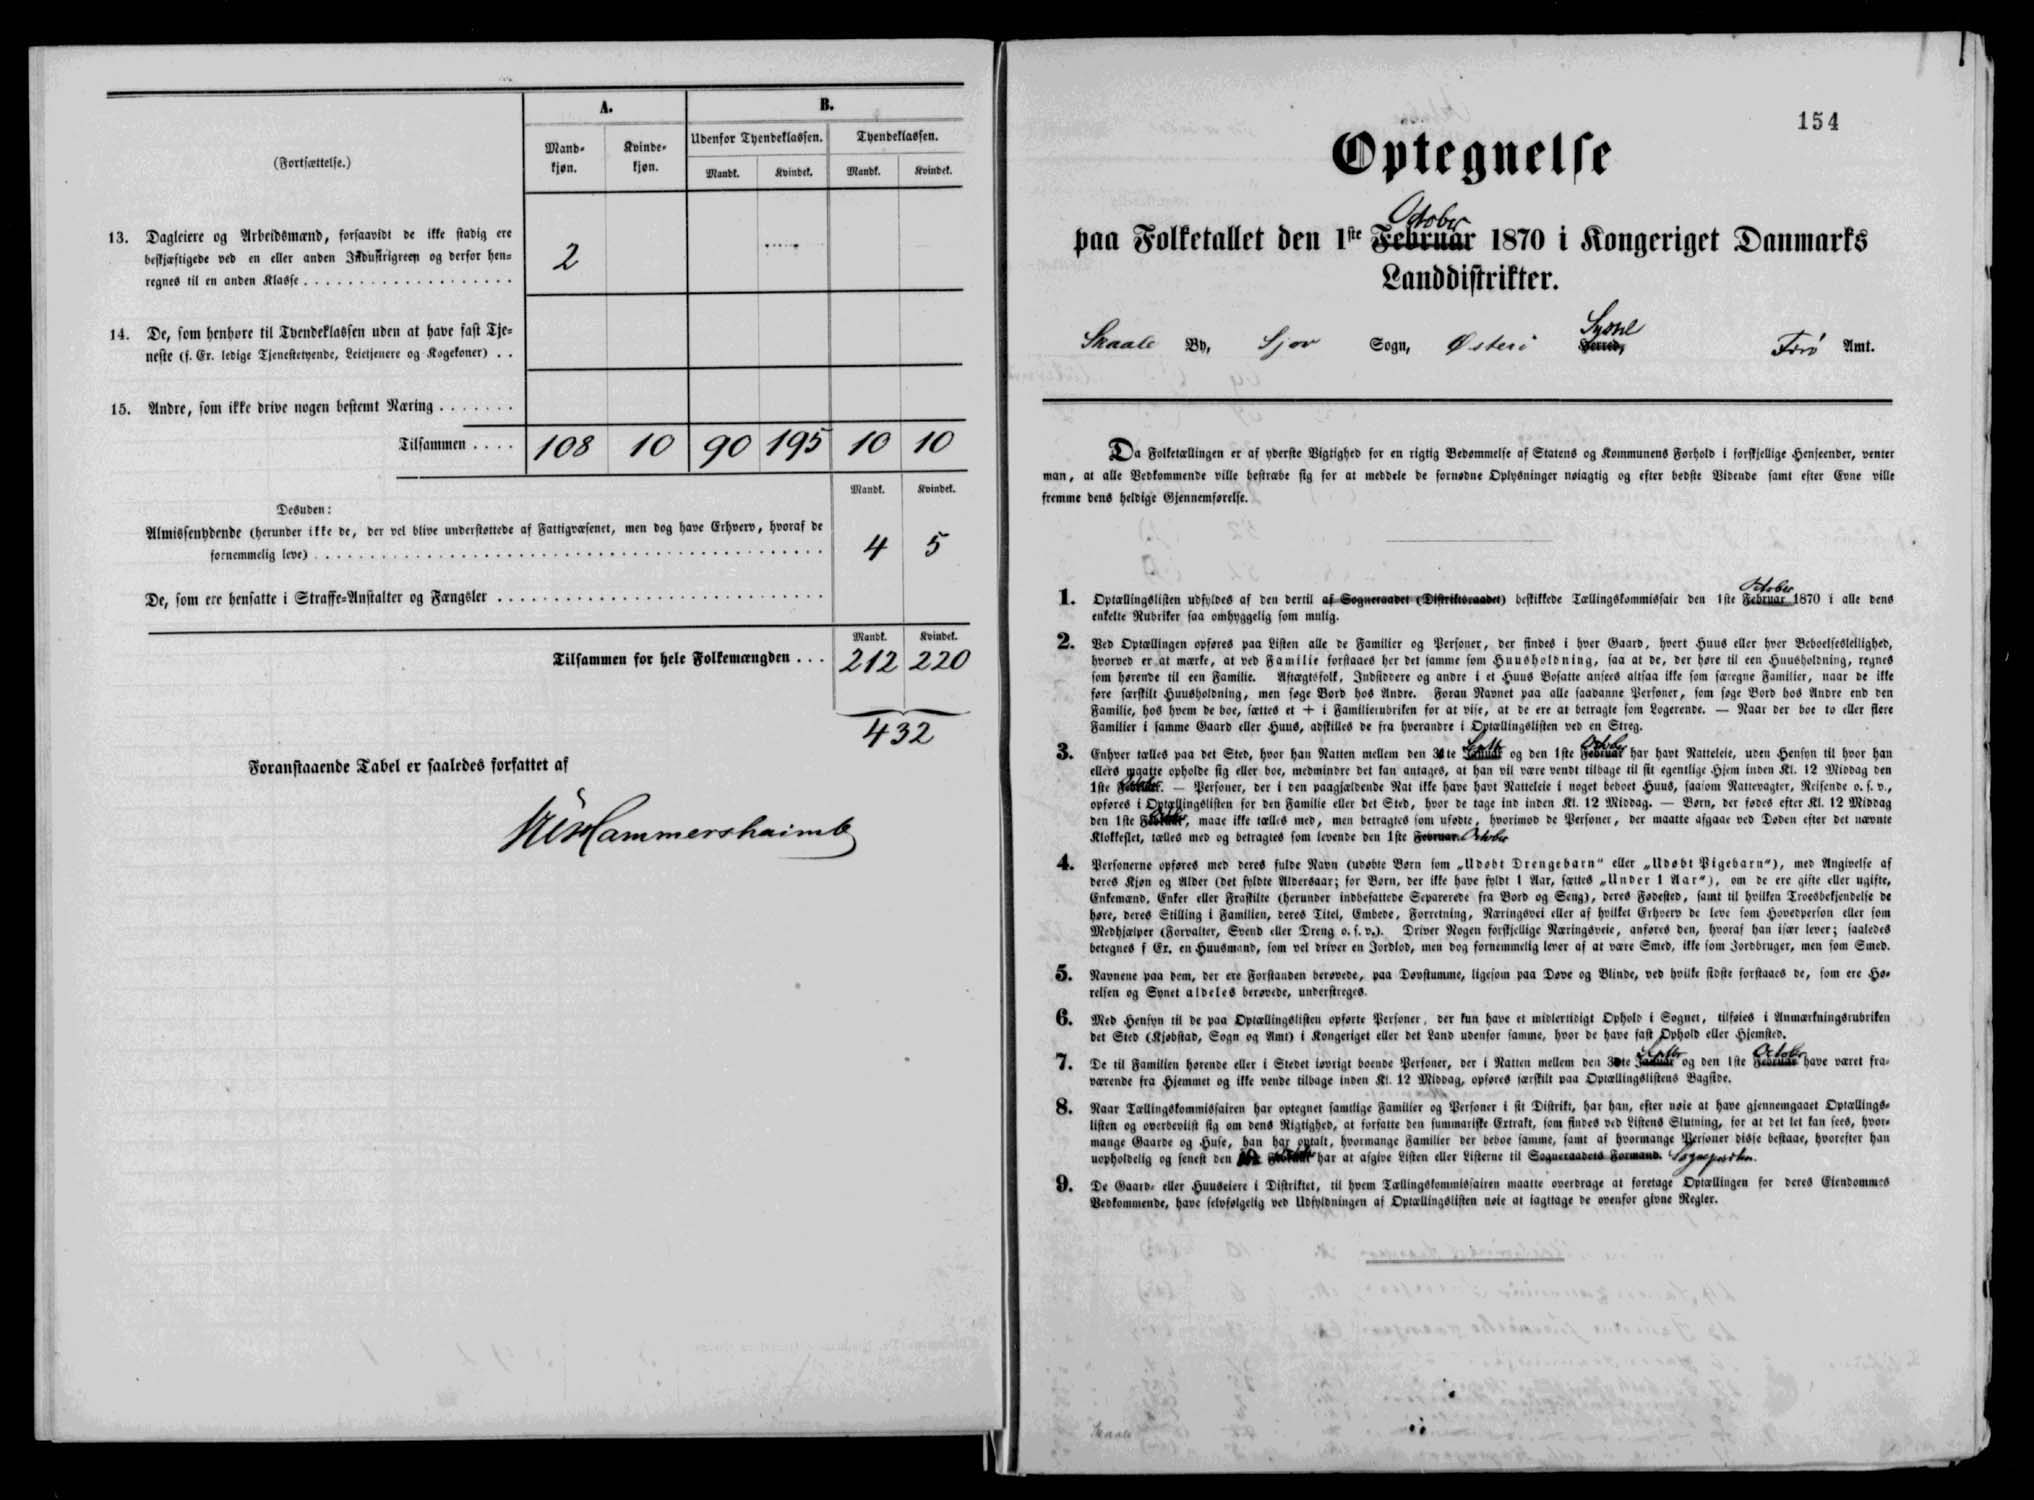 (Fortsættelse.)
A.
B.
Mand-
kjøn.
Kvinde-
kjøn.
Udenfor Tyendeklassen.
Tyendeklassen.
Mandk.
Kvindek.
Mandk.
Kvindek.
13. Dagleiere og Arbeidsmænd, forsaavidt de ikke stadig ere
beskjæftigede ved en eller anden Industrigreen og derfor hen-
regnes til en anden Klasse . . . 2
14. De, som henhøre til Tyendeklassen uden at have fast Tje-
neste (f. Ex. ledige Tjenestetyende, Leietjenere og Kogekoner) . .
15. Andre, som ikke drive nogen bestemt Næring . . . . . . .
Tilsammen . . . . 108 10 90 195 10 10
Mandk. Kvindek.
Desuden:
Almissenydende (herunder ikke de, der vel blive understøttede af Fattigvæsenet, men dog have Erhverv, hvoraf de
fornemmelig leve) . . . 4 5
De, som ere hensatte i Straffe-Anstalter og Fængsler . . .
Mandk. Kvindek.
Tilsammen for hele Folkemængden . . . 212 220
432
Foranstaaende Tabel er saaledes forfattet af
Hammershaimb
154
Optegnelse
October
paa Folketallet den 1ste Februar 1870 i Kongeriget Danmarks
Landdistrikter.
Syssel
Skaale By, Sjov Sogn, Østerø Herred, Færø Amt.
Da Folketællingen er af yderste Vigtighed for en rigtig Bedømmelse af Statens og Kommunens Forhold i forskjellige Henseender, venter
man, at alle Vedkommende ville bestræbe sig for at meddele de fornødne Oplysninger nøiagtig og efter bedste Vidende samt efter Evne ville
fremme dens heldige Gjennemførelse.
October
1. Optællingslisten udfyldes af den dertil af Sogneraadet (Distriktsraadet) beskikkede Tællingskommissair den 1ste Februar 1870 i alle dens
enkelte Rubriker saa omhyggelig som mulig.
2. Ved Optællingen opføres paa Listen alle de Familier og Personer, der findes i hver Gaard, hvert Huus eller hver Beboelsesleilighed,
hvorved er at mærke, at ved Familie forstaaes her det samme som Huusholdning, saa at de, der høre til een Huusholdning, regnes
som hørende til een Familie. Aftægtsfolk, Indsiddere og andre i et Huus Bosatte ansees altsaa ikke som særegne Familier, naar de ikke
føre særskilt Huusholdning, men søge Bord hos Andre. Foran Navnet paa alle saadanne Personer, som søge Bord hos Andre end den
Familie, hos hvem de boe, sættes et + i Familierubriken for at vise, at de ere at betragte som Logerende. — Naar der boe to eller flere
Familier i samme Gaard eller Huus, adskilles de fra hverandre i Optællingslisten ved en Streg.
Septbr October
3. Enhver tælles paa det Sted, hvor han Natten mellem den 30te Januar og den 1ste Februar har havt Natteleie, uden Hensyn til hvor han
ellers maatte opholde sig eller boe, medmindre det kan antages, at han vil være vendt tilbage til sit egentlige Hjem inden Kl. 12 Middag den
1ste Februar. — Personer, der i den paagjældende Nat ikke have havt Natteleie i noget beboet Huus, saasom Nattevagter, Reisende o. s. v.,
opføres i Optællingslisten for den Familie eller det Sted, hvor de tage ind inden Kl. 12 Middag. — Børn, der fødes efter Kl. 12 Middag
den 1ste Februar, maae ikke tælles med, men betragtes som ufødte, hvorimod de Personer, der maatte afgaae ved Døden efter det nævnte
Klokkeslet, tælles med og betragtes som levende den 1ste Februar. October
4. Personerne opføres med deres fulde Navn (udøbte Børn som „Udøbt Drengebarn“ eller „Udøbt Pigebarn“), med Angivelse af
deres Kjøn og Alder (det fyldte Aldersaar; for Børn, der ikke have fyldt 1 Aar, sættes „Under 1 Aar“), om de ere gifte eller ugifte,
Enkemænd, Enker eller Fraskilte (herunder indbefattede Separerede fra Bord og Seng), deres Fødested, samt til hvilken Troesbekjendelse de
høre, deres Stilling i Familien, deres Titel, Embede, Forretning, Næringsvei eller af hvilket Erhverv de leve som Hovedperson eller som
Medhjælper (Forvalter, Svend eller Dreng o. s. v.). Driver Nogen forskjellige Næringsveie, anføres den, hvoraf han især lever; saaledes
betegnes f Ex. en Huusmand, som vel driver en Jordlod, men dog fornemmelig lever af at være Smed, ikke som Jordbruger, men som Smed.
5. Navnene paa dem, der ere Forstanden berøvede, paa Døvstumme, ligesom paa Døve og Blinde, ved hvilke sidste forstaaes de, som ere Hø-
relsen og Synet aldeles berøvede, understreges.
6. Med Hensyn til de paa Optællingslisten opførte Personer, der kun have et midlertidigt Ophold i Sognet, tilføies i Anmærkningsrubriken
det Sted (Kjøbstad, Sogn og Amt) i Kongeriget eller det Land udenfor samme, hvor de have fast Ophold eller Hjemsted.
Septbr October
7. De til Familien hørende eller i Stedet iøvrigt boende Personer, der i Natten mellem den 30te Januar og den 1ste Februar have været fra-
værende fra Hjemmet og ikke vende tilbage inden Kl. 12 Middag, opføres særskilt paa Optællingslistens Bagside.
8. Naar Tællingskommissairen har optegnet samtlige Familier og Personer i sit Distrikt, har han, efter nøie at have gjennemgaaet Optællings-
listen og overbeviist sig om dens Rigtighed, at forfatte den summariske Extrakt, som findes ved Listens Slutning, for at det let kan sees, hvor-
mange Gaarde og Huse, han har optalt, hvormange Familier der beboe samme, samt af hvormange Personer disse bestaae, hvorefter han
uopholdelig og senest den Februar har at afgive Listen eller Listerne til Sogneraadets Formand. Sognepræsten.
9. De Gaard- eller Huuseiere i Distriktet, til hvem Tællingskommissairen maatte overdrage at foretage Optællingen for deres Eiendommes
Vedkommende, have selvfølgelig ved Udfyldningen af Optællingslisten nøie at iagttage de ovenfor givne Regler.
Skaale